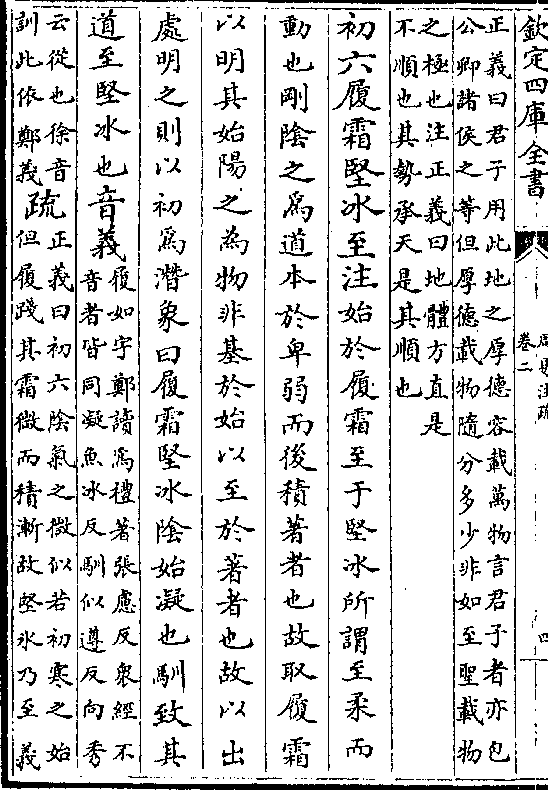 欽定四庫全書
卷二
四
正義曰君子用此地之厚德容載萬物言君子者亦包
公卿諸侯之等但厚德載物隨分多少非如至聖載物
之極也注正義曰地體方直是
不順也其勢承天是其順也
初六履霜堅冰至注始於履霜至于堅冰所謂至柔而
動也剛陰之為道本於卑弱而後積著者也故取履霜
以明其始陽之為物非基於始以至於著者也故以出
處明之則以初為潛象曰履霜堅冰陰始凝也馴致其
道至堅冰也音義履如字鄭讀為禮著張慮反衆經不
音者皆同凝魚冰反馴似遵反向秀
云從也徐音
訓此依鄭義疏正義曰初六陰氣之微似若初寒之始
但履踐其霜微而積漸故堅冰乃至義